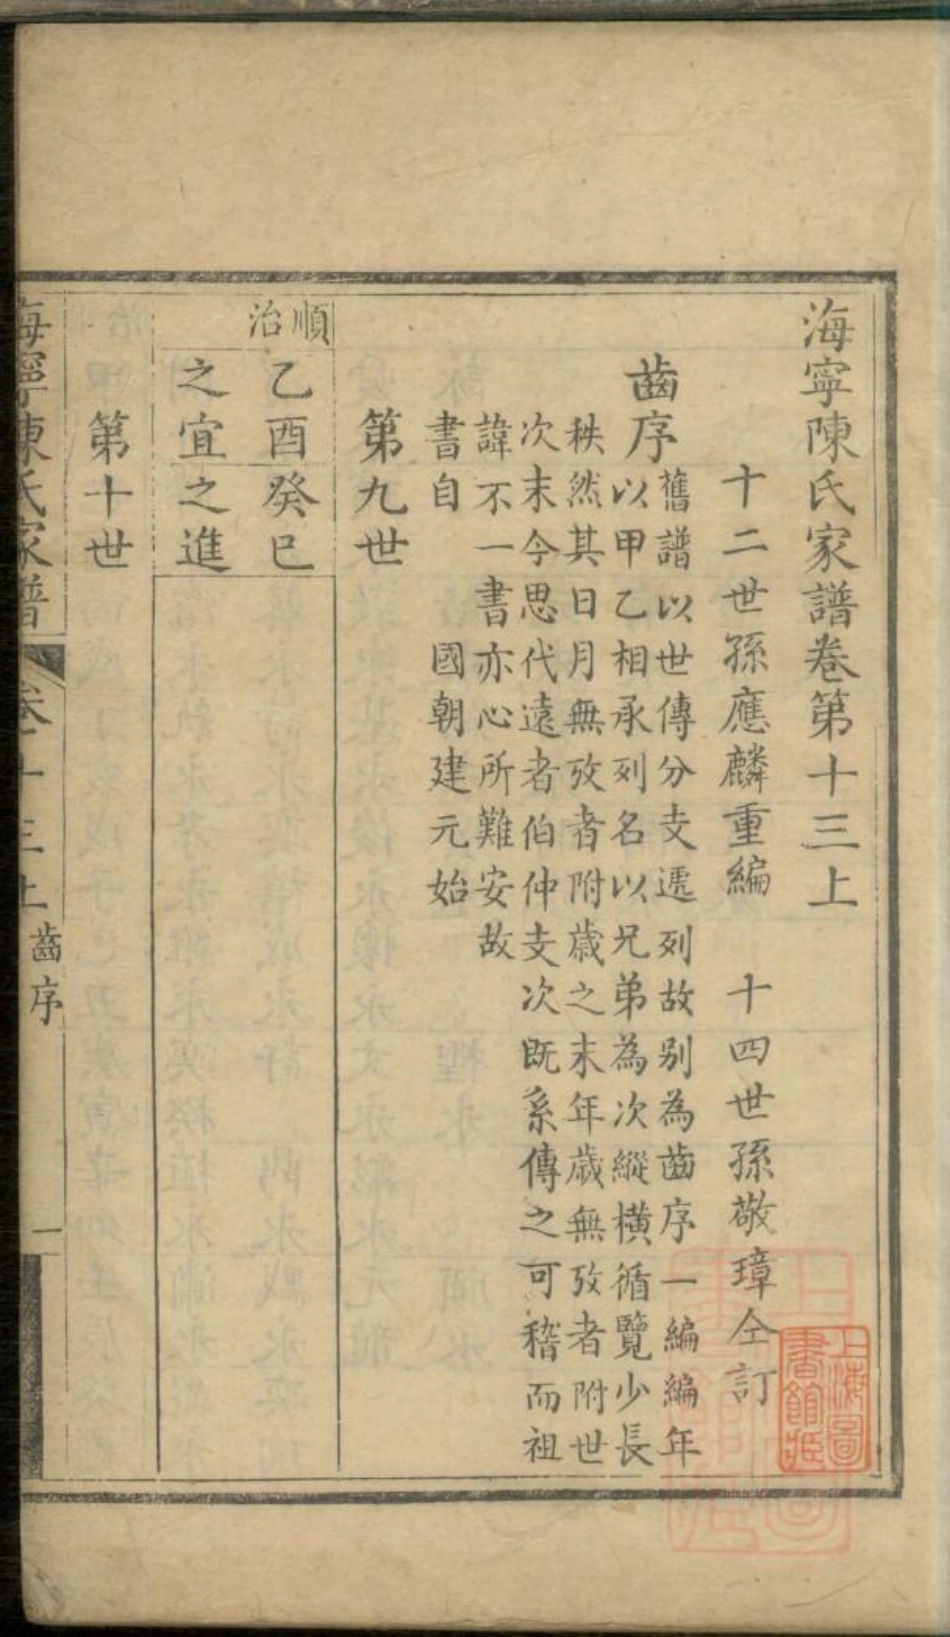 海寧陳氏家譜卷第十三上
十二世孫應麟重編 十四世孫敬璋仝訂
齒序
舊譜以世傳分支遞列故别為齒序一編編年
以甲乙相承列名以兄弟為次縱橫循覽少長
秩然其日月無攷者附歲之末年歲無攷者附世
次末今思代遠者伯仲支次既系傳之可稽而祖
諱不一書亦心所難安故
書自 國朝建元始
第九世
順治
乙酉 癸巳
之宜 之進
第十世
海寧陳氏家譜 卷十三上 齒序 一
上海圖書館藏